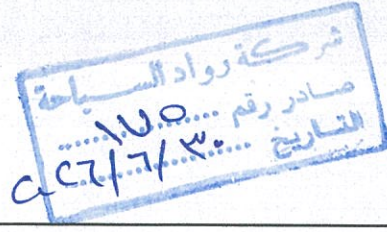 شركة رواد السياحة
صادر رقم ١٧٥
التاريخ ٢٠٢٦/٦/٣٠